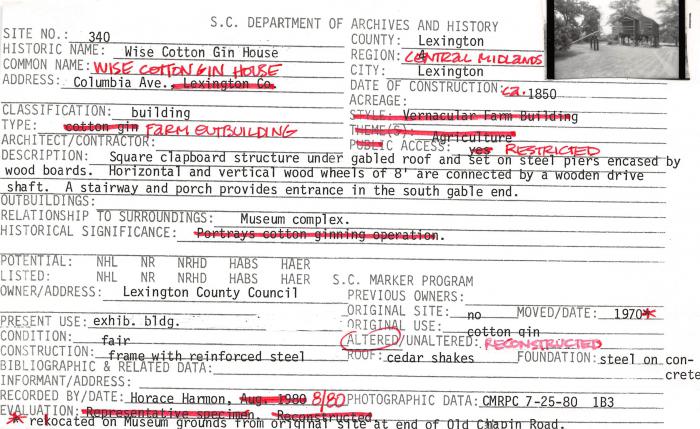 S.C. DEPARTMENT OF ARCHIVES AND HISTORY
SITE NO.: 340
COUNTY: Lexington
HISTORIC NAME: Wise Cotton Gin House
REGION: 4 CENTRAL MIDLANDS
COMMON NAME: WISE COTTON GIN HOUSE
CITY: Lexington
ADDRESS: Columbia Ave., Lexington Co.
DATE OF CONSTRUCTION: ca. 1850
ACREAGE:
CLASSIFICATION: building
STYLE: Vernacular Farm Building
TYPE: cotton gin FARM OUTBUILDING
THEME(S): Agriculture
ARCHITECT/CONTRACTOR:
PUBLIC ACCESS: yes RESTRICTED
DESCRIPTION: Square clapboard structure under gabled roof and set on steel piers encased by
wood boards. Horizontal and vertical wood wheels of 8' are connected by a wooden drive
shaft. A stairway and porch provides entrance in the south gable end.
OUTBUILDINGS:
RELATIONSHIP TO SURROUNDINGS: Museum complex.
HISTORICAL SIGNIFICANCE: Portrays cotton ginning operation.
POTENTIAL: NHL NR NRHD HABS HAER
LISTED: NHL NR NRHD HABS HAER S.C. MARKER PROGRAM
OWNER/ADDRESS: Lexington County Council
PREVIOUS OWNERS:
ORIGINAL SITE: no MOVED/DATE: 1970*
PRESENT USE: exhib. bldg.
ORIGINAL USE: cotton gin
CONDITION: fair
ALTERED/UNALTERED: RECONSTRUCTED
CONSTRUCTION: frame with reinforced steel
ROOF: cedar shakes FOUNDATION: steel on con-
crete
BIBLIOGRAPHIC & RELATED DATA:
INFORMANT/ADDRESS:
RECORDED BY/DATE: Horace Harmon, Aug. 1980 8/80 PHOTOGRAPHIC DATA: CMRPC 7-25-80 1B3
EVALUATION: Representative specimen. Reconstructed
* relocated on Museum grounds from original site at end of Old Chapin Road.